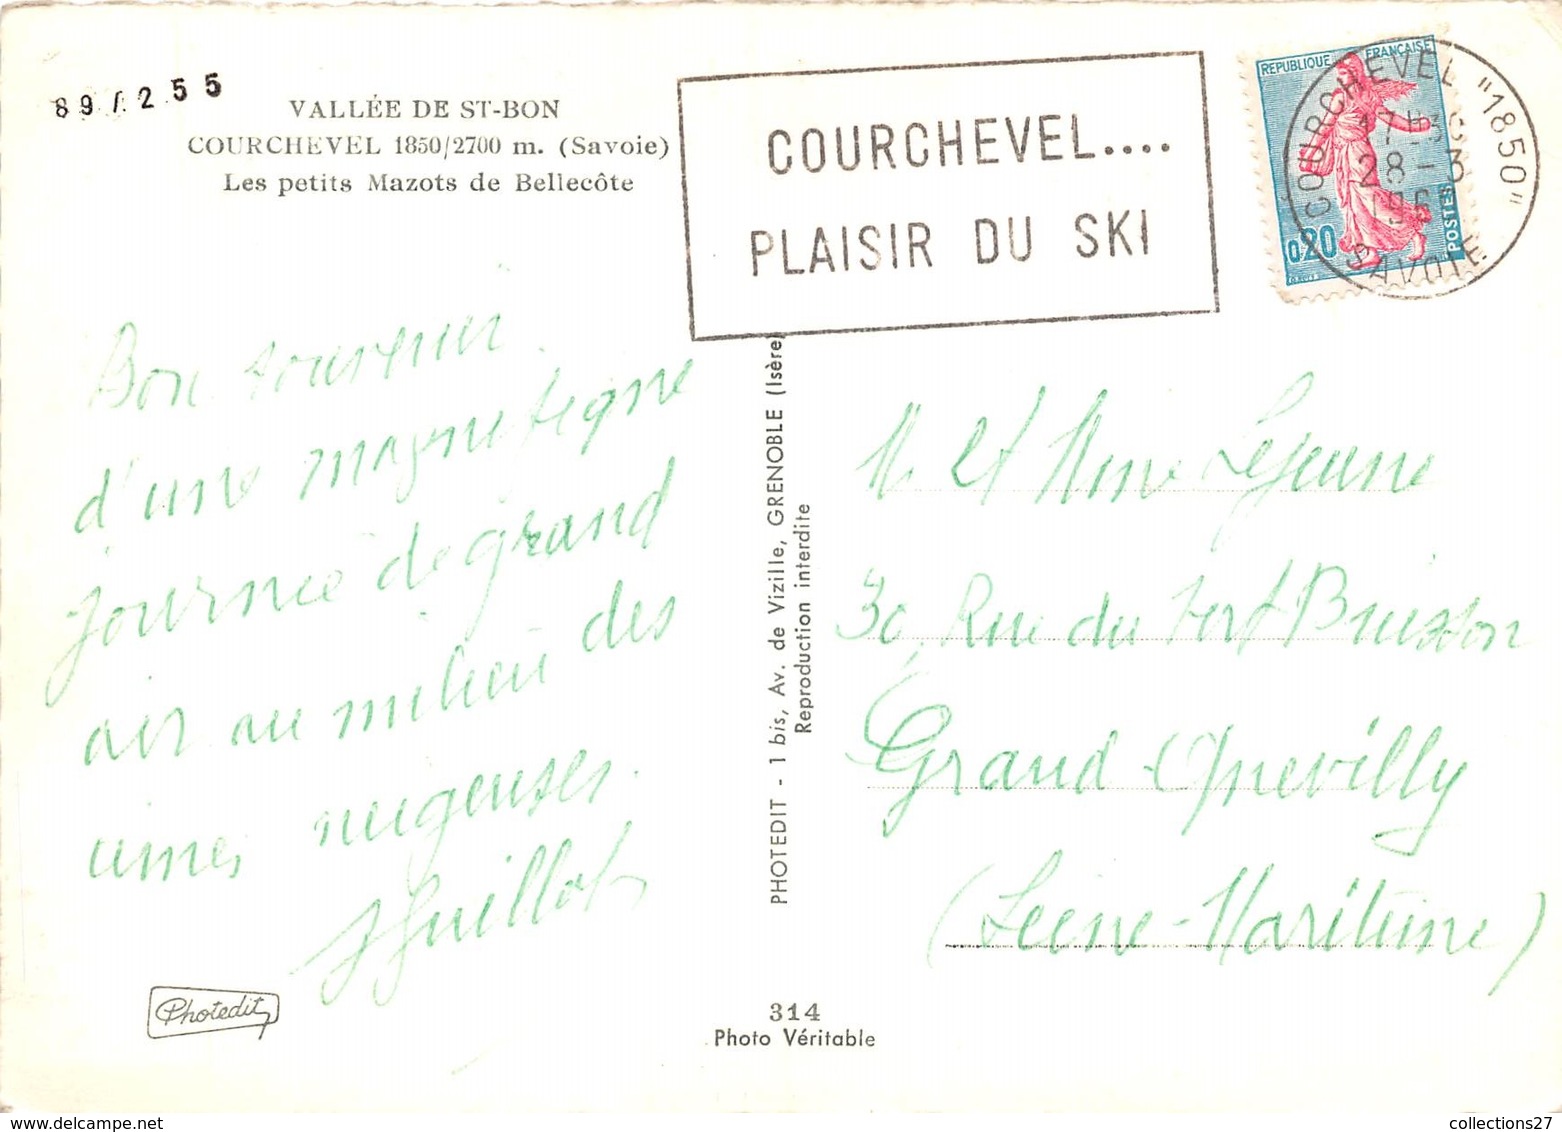 89/255
VALLÉE DE ST-BON
COURCHEVEL 1850/2700 m. (Savoie)
Les petits Mazots de Bellecôte
COURCHEVEL....
PLAISIR DU SKI
REPUBLIQUE FRANÇAISE
0,20
POSTES
COURCHEVEL "1850"
28-3
SAVOIE
Bon souvenir
d'une magnifique
journée de grand
air au milieu des
cimes neigeuses.
Guillot
PHOTEDIT - 1 bis, Av. de Vizille, GRENOBLE (Isère
Reproduction interdite
M et Mme Lejeune
30 Rue du Vert Buisson
Grand-Quevilly
(Seine-Maritime)
Photedit
314
Photo Véritable
collections27